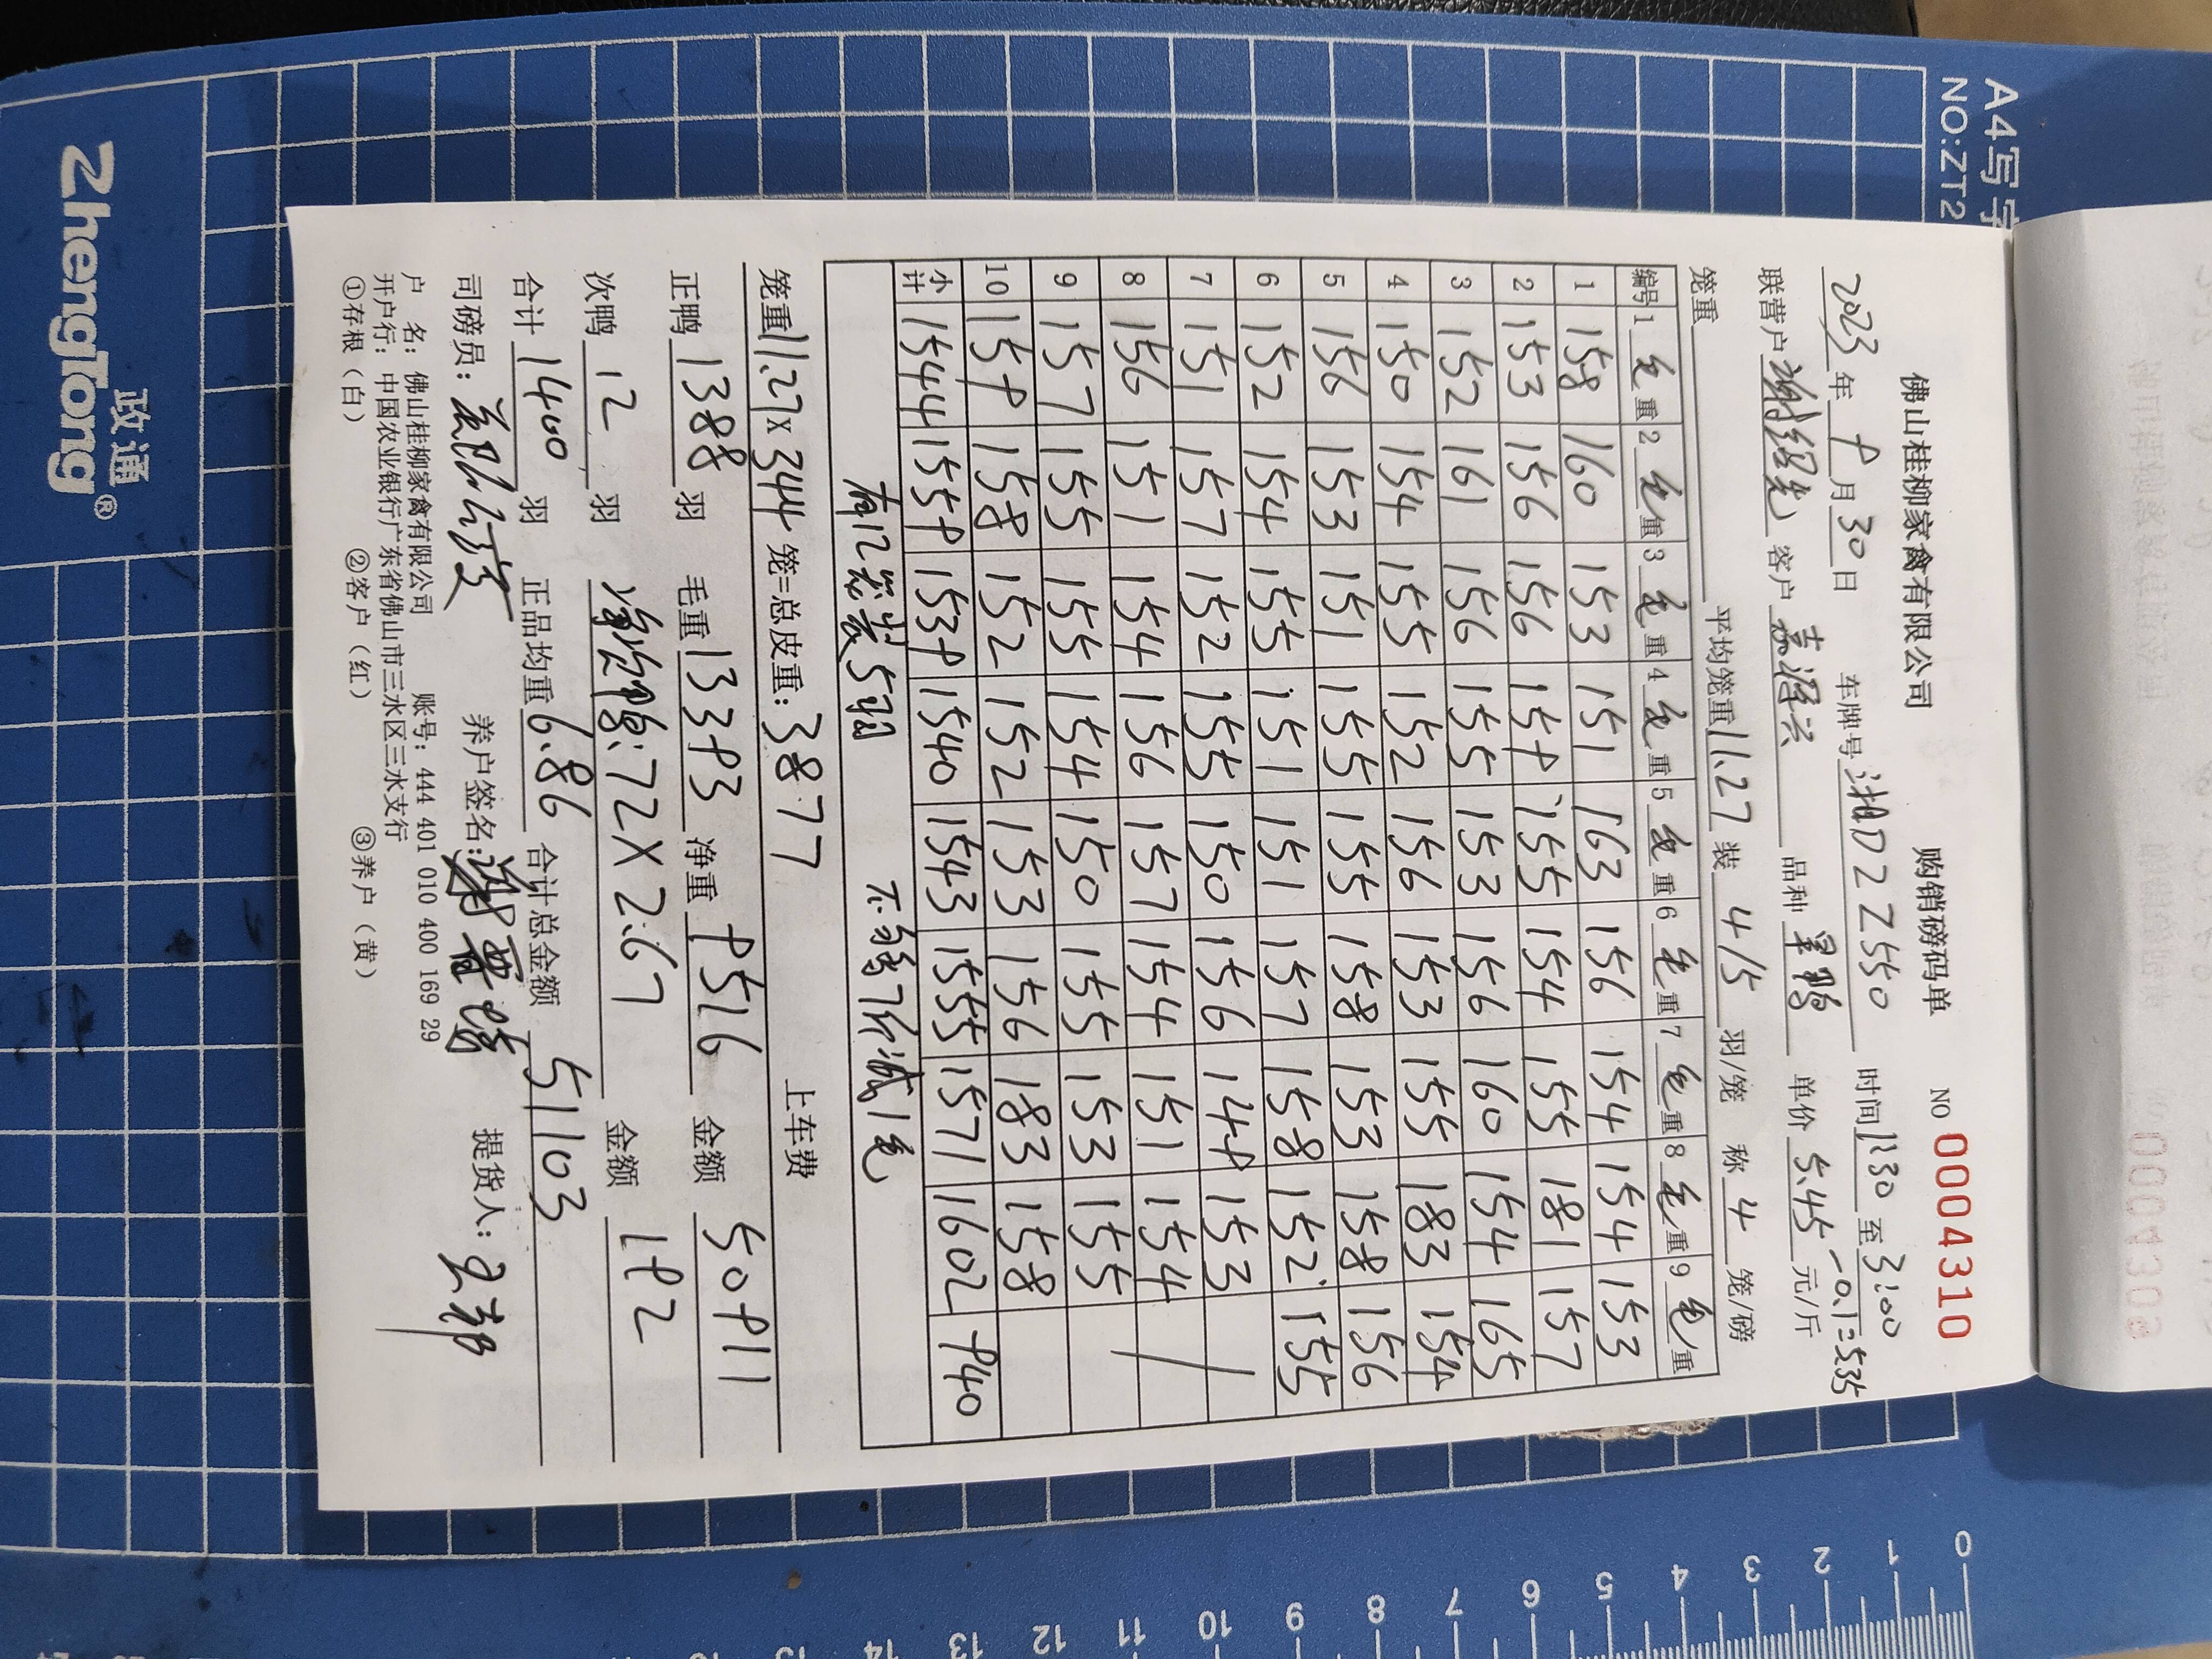 佛山桂柳家禽有限公司 购销磅码单 NO 0004310
2023年9月30日 车牌号 湘D2Z550 时间 11:30 至 3:00
联营户 客户 嘉洋兴 品种 单价 5.45-0.1=5.35 元/斤
笼重 平均笼重 11.27 装 4/5 羽/笼 称 4 笼/磅
编号 1 毛重 2 毛重 3 毛重 4 毛重 5 毛重 6 毛重 7 毛重 8 毛重 9 毛重
1 158 160 153 151 163 156 154 154 153
2 153 156 156 159 155 154 155 181 157
3 152 161 156 155 153 156 160 154 165
4 150 154 155 152 156 153 155 183 154
5 156 153 151 155 155 158 153 158 156
6 152 154 155 151 151 157 158 152 155
7 151 157 152 155 150 156 149 153
8 156 151 154 156 157 154 151 154
9 157 155 155 154 150 155 153 155
10 159 158 152 152 153 156 183 158
小计 1544 1559 1539 1540 1543 1555 1571 1602 940
有12笼装5羽 不打价减1毛
笼重 11.27×344 笼=总皮重: 3877 上车费
正鸭 1388 羽 毛重 13393 净重 9516 金额 50911
次鸭 12 羽 72×2.67 金额 192
合计 1400 羽 正品均重 6.86 合计总金额 51103
司磅员: 养户签名: 提货人:
户 名: 佛山桂柳家禽有限公司 账号: 444 401 010 400 169 29
开户行: 中国农业银行广东省佛山市三水区三水支行
①存根（白） ②客户（红） ③养户（黄）
政通
ZhengTong®
A4写字
NO:ZT2
0 1 2 3 4 5 6 7 8 9 10 11 12 13 14